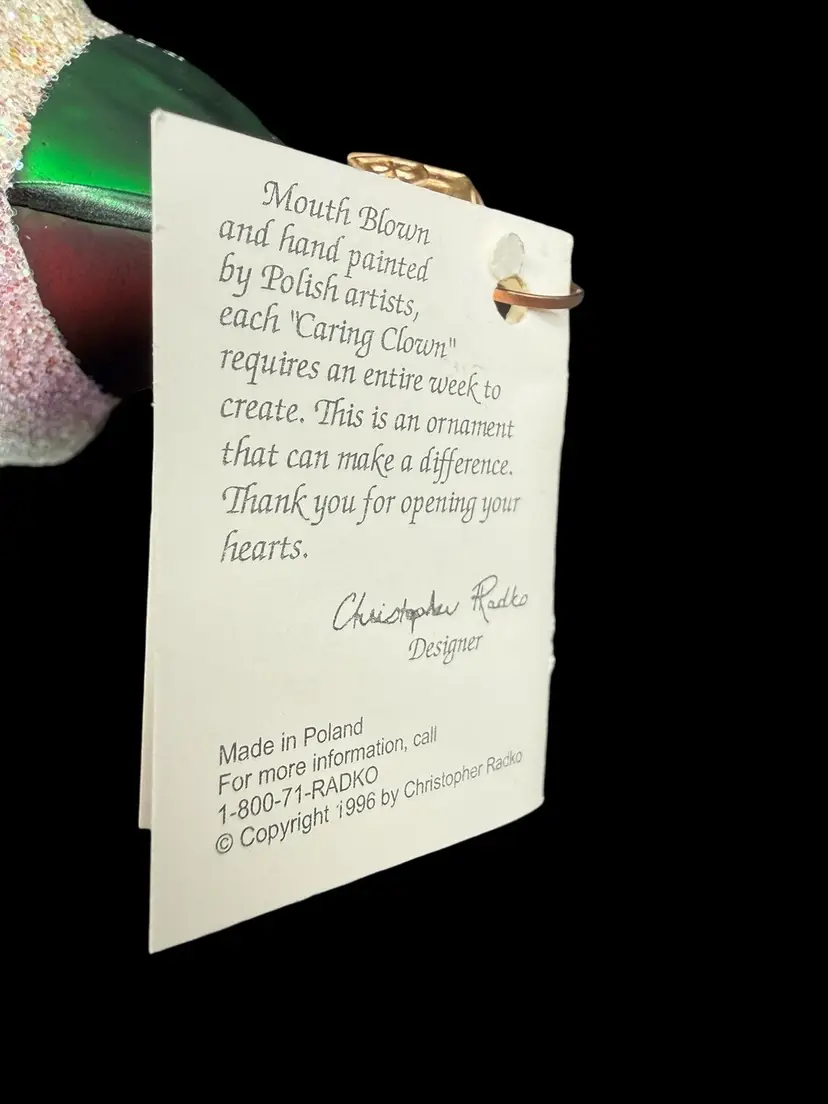 Mouth Blown
and hand painted
by Polish artists,
each "Caring Clown"
requires an entire week to
create. This is an ornament
that can make a difference.
Thank you for opening your
hearts.
Christopher Radko
Designer
Made in Poland
For more information, call
1-800-71-RADKO
© Copyright 1996 by Christopher Radko